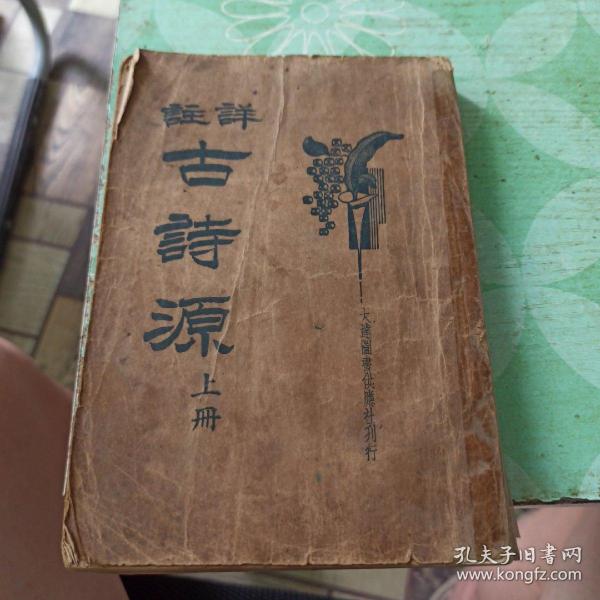 詳註
古詩源
上冊
大達圖書供應社刊行
孔夫子旧书网
www.kongfz.com